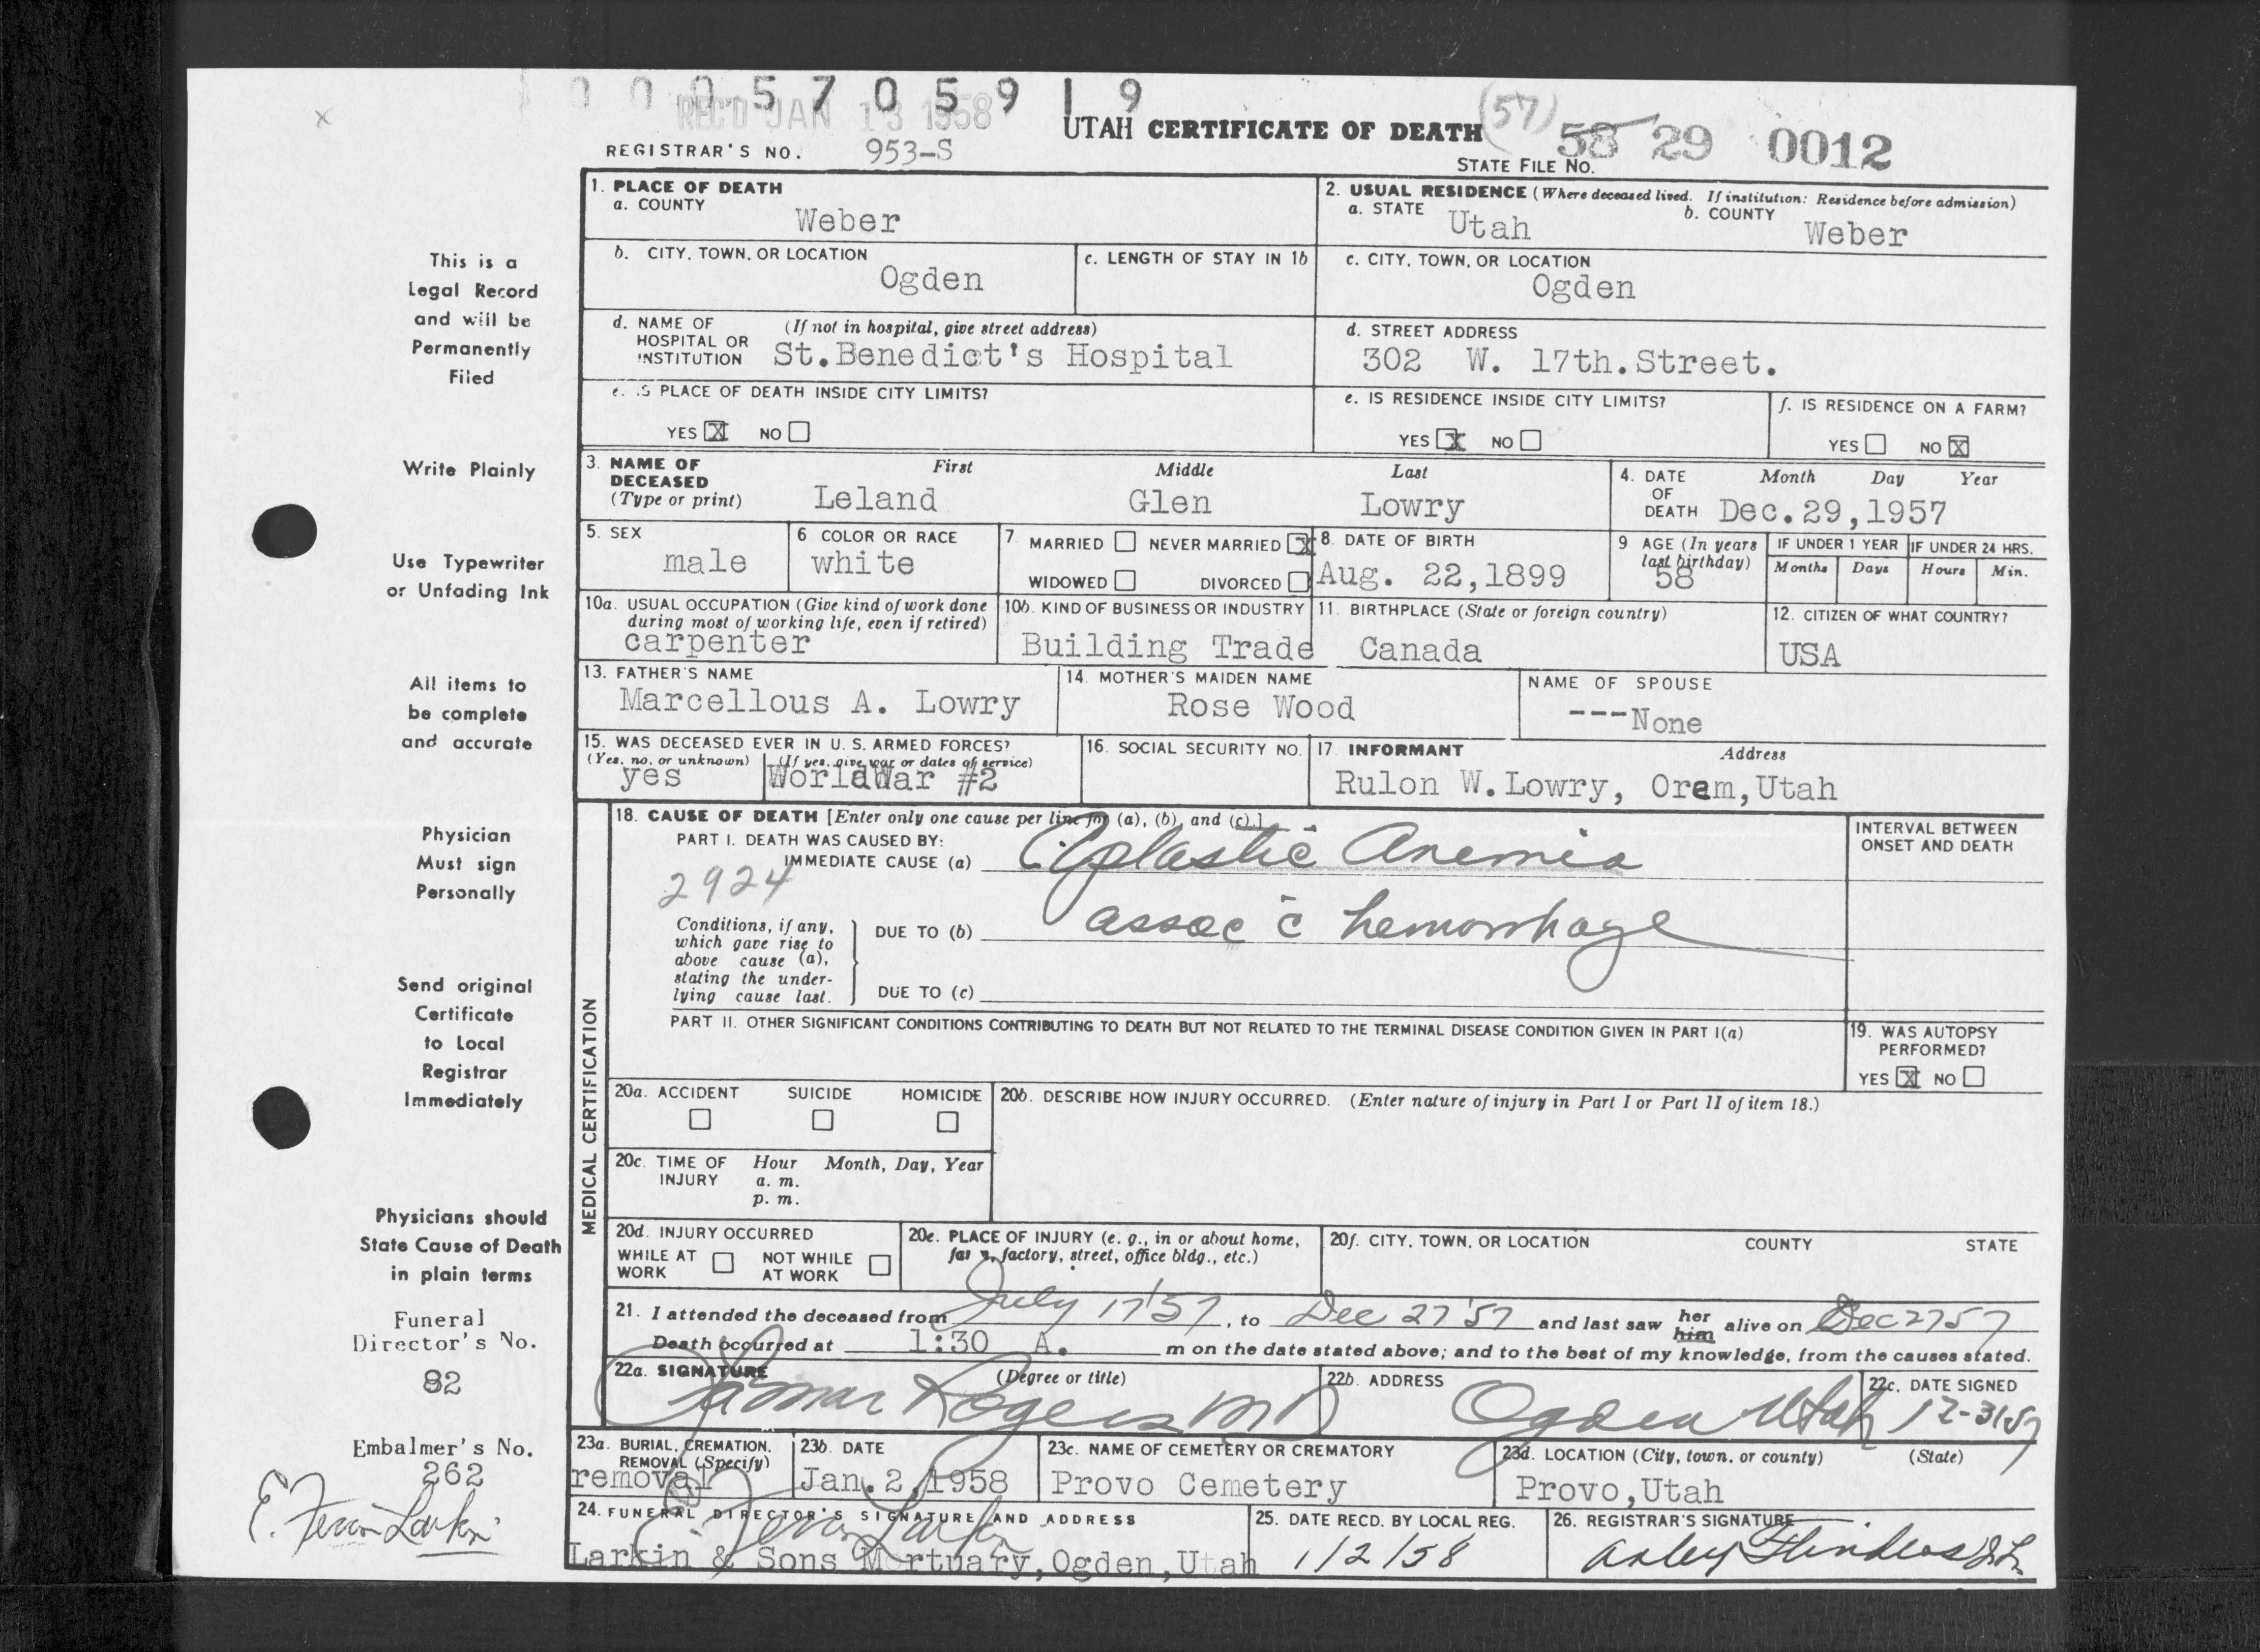 0 0 0 5 7 0 5 9 1 9
REC'D JAN 13 1958
UTAH CERTIFICATE OF DEATH
(57)
58 29 0012
REGISTRAR'S NO. 953-S
STATE FILE NO.
1. PLACE OF DEATH
a. COUNTY
Weber
2. USUAL RESIDENCE (Where deceased lived. If institution: Residence before admission)
a. STATE Utah b. COUNTY Weber
b. CITY, TOWN, OR LOCATION
Ogden
c. LENGTH OF STAY IN 1b
c. CITY, TOWN, OR LOCATION
Ogden
d. NAME OF HOSPITAL OR INSTITUTION
(If not in hospital, give street address)
St.Benedict's Hospital
d. STREET ADDRESS
302 W. 17th.Street.
e. IS PLACE OF DEATH INSIDE CITY LIMITS?
YES X NO
e. IS RESIDENCE INSIDE CITY LIMITS?
YES X NO
f. IS RESIDENCE ON A FARM?
YES NO X
3. NAME OF DECEASED
(Type or print)
First Middle Last
Leland Glen Lowry
4. DATE OF DEATH
Month Day Year
Dec.29,1957
5. SEX
male
6 COLOR OR RACE
white
7. MARRIED NEVER MARRIED X
WIDOWED DIVORCED
8. DATE OF BIRTH
Aug. 22,1899
9 AGE (In years last birthday)
58
IF UNDER 1 YEAR
Months Days
IF UNDER 24 HRS.
Hours Min.
10a. USUAL OCCUPATION (Give kind of work done during most of working life, even if retired)
carpenter
10b. KIND OF BUSINESS OR INDUSTRY
Building Trade
11. BIRTHPLACE (State or foreign country)
Canada
12. CITIZEN OF WHAT COUNTRY?
USA
13. FATHER'S NAME
Marcellous A. Lowry
14. MOTHER'S MAIDEN NAME
Rose Wood
NAME OF SPOUSE
---None
15. WAS DECEASED EVER IN U. S. ARMED FORCES?
(Yes, no, or unknown) (If yes, give war or dates of service)
yes WorldWar #2
16. SOCIAL SECURITY NO.
17. INFORMANT Address
Rulon W.Lowry, Orem,Utah
MEDICAL CERTIFICATION
18. CAUSE OF DEATH [Enter only one cause per line for (a), (b), and (c).]
PART I. DEATH WAS CAUSED BY:
IMMEDIATE CAUSE (a) Aplastic Anemia
2924
Conditions, if any, which gave rise to above cause (a), stating the underlying cause last.
DUE TO (b) assoc c̄ hemorrhage
DUE TO (c)
INTERVAL BETWEEN ONSET AND DEATH
PART II. OTHER SIGNIFICANT CONDITIONS CONTRIBUTING TO DEATH BUT NOT RELATED TO THE TERMINAL DISEASE CONDITION GIVEN IN PART I(a)
19. WAS AUTOPSY PERFORMED?
YES X NO
20a. ACCIDENT SUICIDE HOMICIDE
20b. DESCRIBE HOW INJURY OCCURRED. (Enter nature of injury in Part I or Part II of item 18.)
20c. TIME OF INJURY
Hour Month, Day, Year
a. m.
p. m.
20d. INJURY OCCURRED
WHILE AT WORK NOT WHILE AT WORK
20e. PLACE OF INJURY (e. g., in or about home, farm, factory, street, office bldg., etc.)
20f. CITY, TOWN, OR LOCATION COUNTY STATE
21. I attended the deceased from July 17 '57, to Dec 27 '57 and last saw her him alive on Dec 27 57
Death occurred at 1:30 A. m on the date stated above; and to the best of my knowledge, from the causes stated.
22a. SIGNATURE (Degree or title)
Lamar Rogers MD
22b. ADDRESS
Ogden Utah
22c. DATE SIGNED
12-31 57
23a. BURIAL, CREMATION, REMOVAL (Specify)
removal
23b. DATE
Jan.2,1958
23c. NAME OF CEMETERY OR CREMATORY
Provo Cemetery
23d. LOCATION (City, town, or county) (State)
Provo,Utah
24. FUNERAL DIRECTOR'S SIGNATURE AND ADDRESS
E. Feron Larkin
Larkin & Sons Mortuary,Ogden,Utah
25. DATE RECD. BY LOCAL REG.
1/2/58
26. REGISTRAR'S SIGNATURE
x
This is a
Legal Record
and will be
Permanently
Filed
Write Plainly
Use Typewriter
or Unfading Ink
All items to
be complete
and accurate
Physician
Must sign
Personally
Send original
Certificate
to Local
Registrar
Immediately
Physicians should
State Cause of Death
in plain terms
Funeral
Director's No.
82
Embalmer's No.
262
E. Feron Larkin